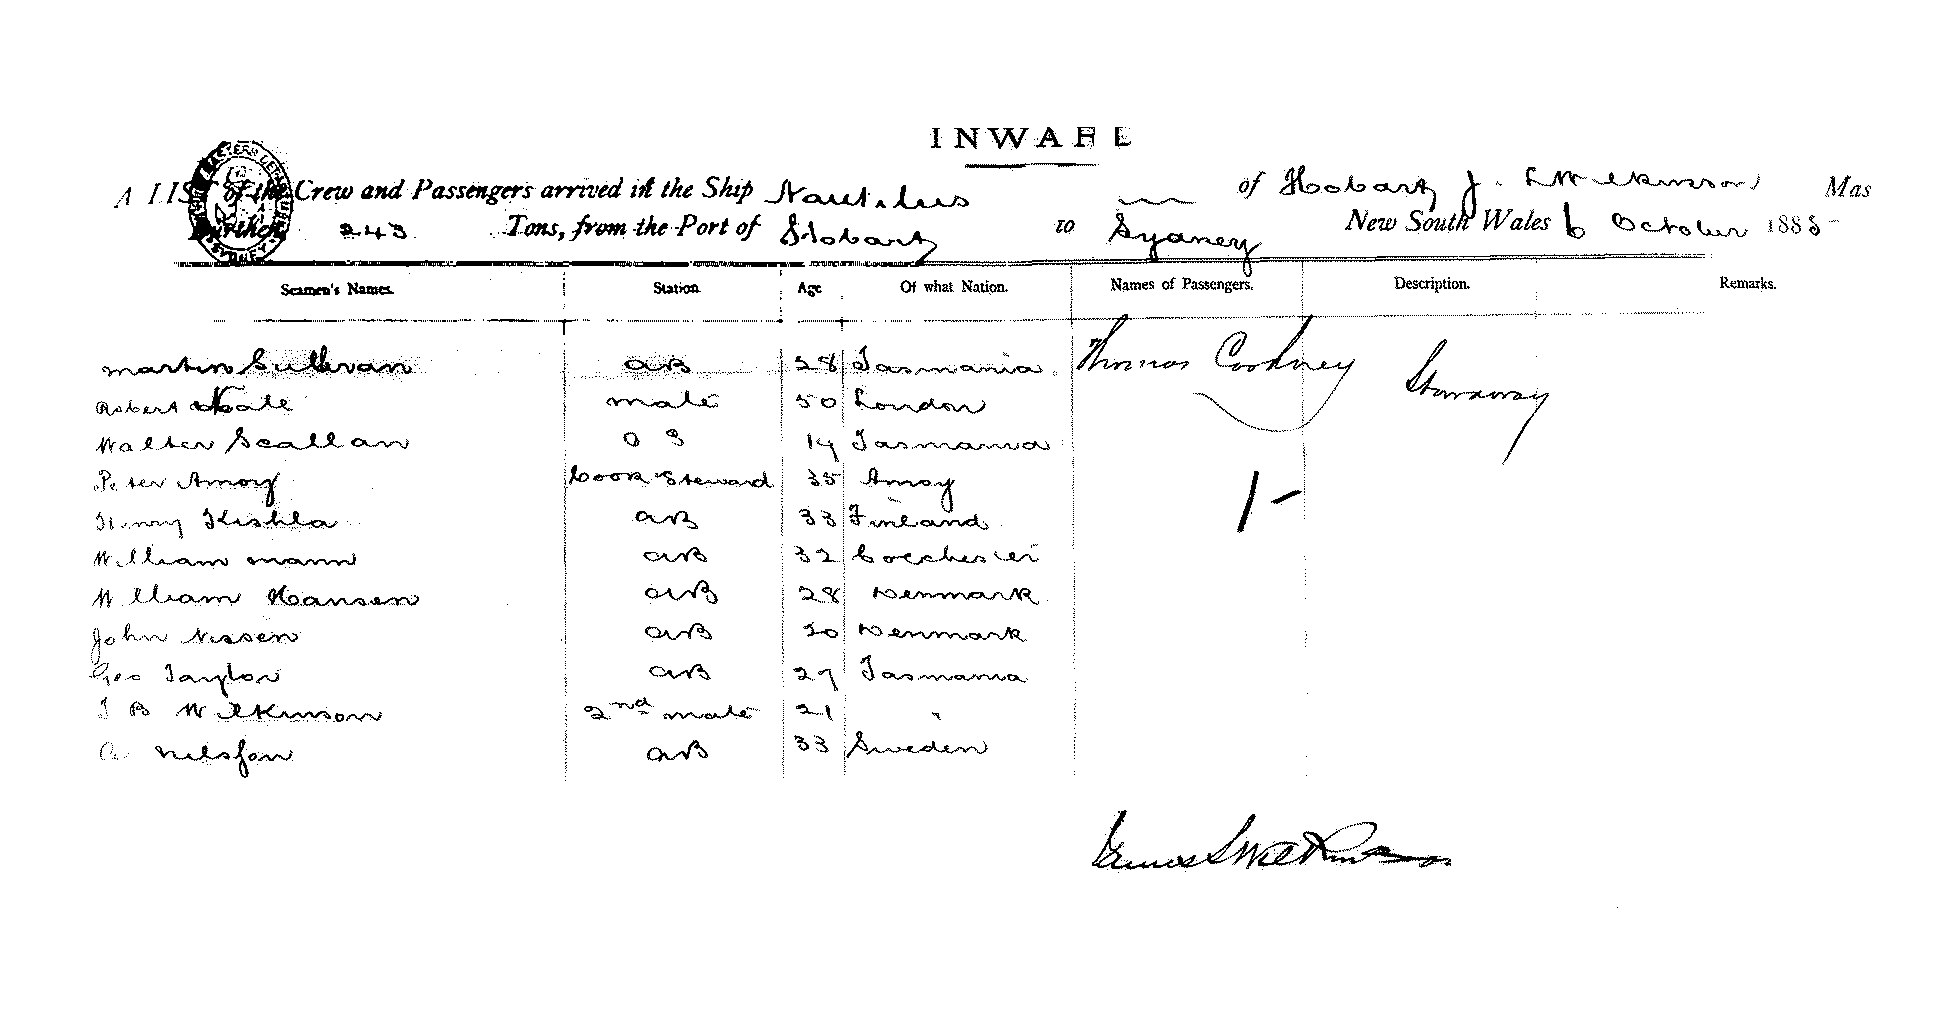 INWARD
A LIST of the Crew and Passengers arrived in the Ship Nautilus of Hobart J. S Wilkinson Mas
Burthen 243 Tons, from the Port of Hobart to Sydney New South Wales 6 October 1885
Seamen's Names. Station. Age Of what Nation. Names of Passengers. Description. Remarks.
Martin Sullivan AB 28 Tasmania Thomas Cockney Stowaway
Robert Nate mate 50 London
Walter Scallan O S 19 Tasmania
Peter Amoy Cook Steward 35 Amoy
Henry Kishla AB 33 Finland
1-
William Mann AB 32 Colchester
William Hansen AB 28 Denmark
John Nissen AB 20 Denmark
Geo Taylor AB 27 Tasmania
J B Wilkinson 2nd mate 21 "
A Nelsson AB 33 Sweden
James S Wilkinson